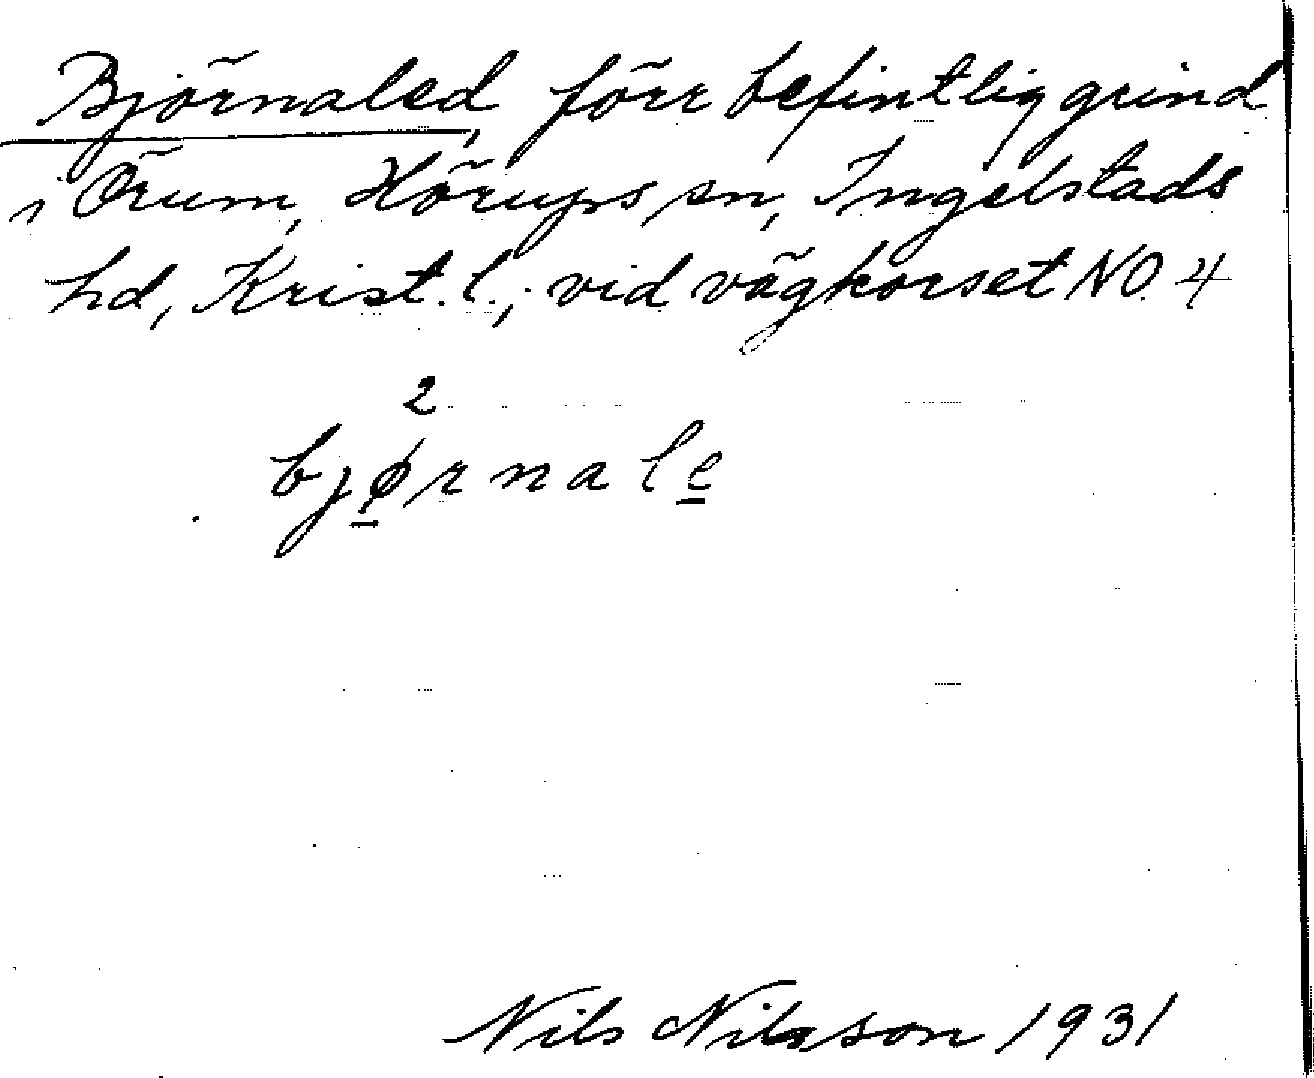 Björnaled, förr befintlig grind
i Örum, Hörups sn, Ingelstads
hd, Krist. l.; vid vägkorset NO. 4
2
bjørnale
Nils Nilsson 1931